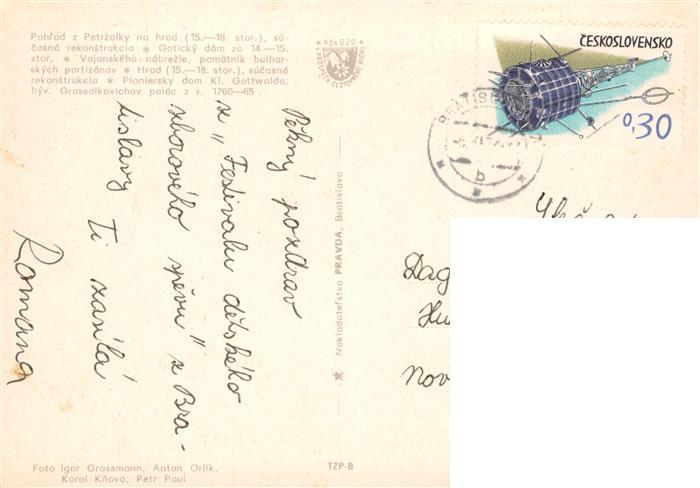 Pohľad z Petržalky na hrad (15.—18. stor.), sú-
časná rekonštrukcia ✷ Gotický dóm zo 14.—15.
stor. ✷ Vajanského nábrežie, pamätník bulhar-
ských partizánov ✷ Hrad (15.—18. stor.), súčasná
rekonštrukcia ✷ Pioniersky dom Kl. Gottwalda,
býv. Grassalkovichov palác z r. 1760—65 .
Kčs 0,20
ČESKOSLOVENSKO
0,30
BRATISL
b
Pěkný pozdrav
z „Festivalu dětského
sborového zpěvu" z Bra-
tislavy Ti zasílá
Romana
✷ Nakladateľstvo PRAVDA, Bratislava
Dag
Hu
Nov
Foto Igor Grossmann, Anton Orlík,
Karol Kňava, Petr Paul
TZP-B